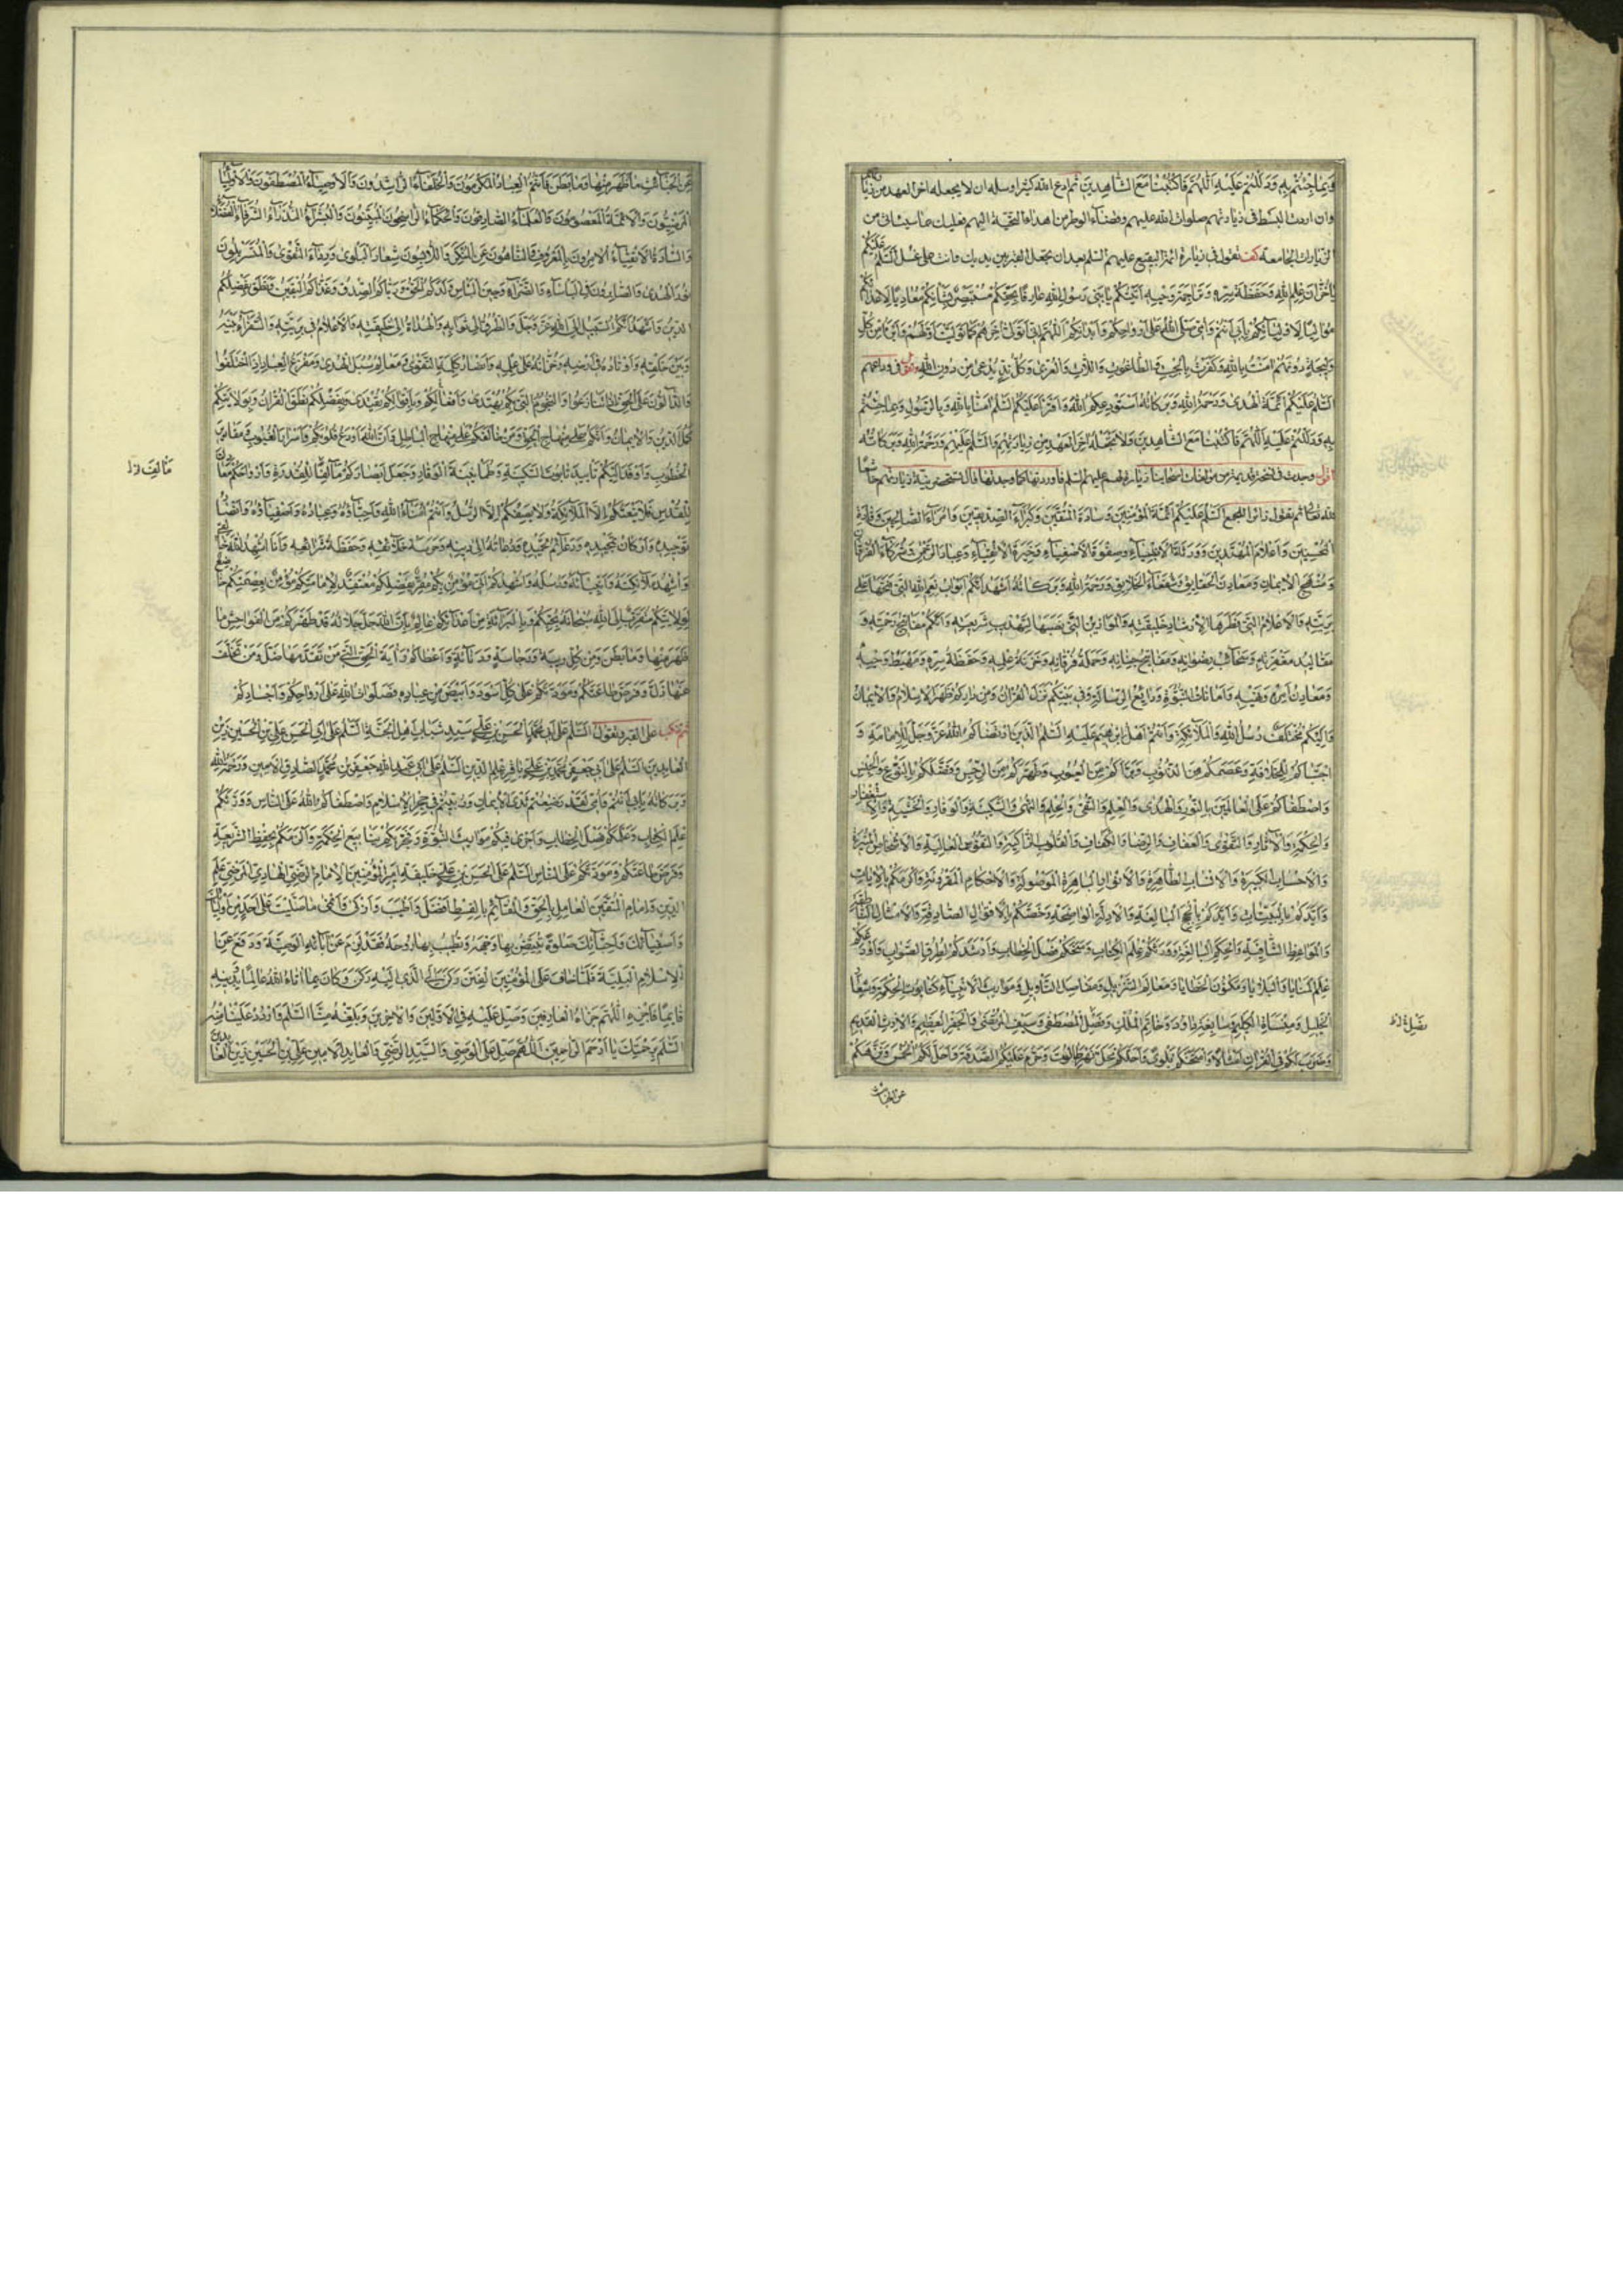 وبما جئتم به ودللتم عليه اللهم فاكتبنا مع الشاهدين ثم ادع الله كثيرا وسله ان لا يجعله اخر العهد من زيارتهم
وان اردت البسط في زيارتهم صلوات الله عليهم وقضاء الوطر من اهداء التحية اليهم فعليك بما سيأتي من
الزيارات الجامعة تقول في زيارة ائمة البقيع عليهم السلم بعد ان تجعل القبر بين يديك وانت على غسل السلم عليكم
يا خزان علم الله وحفظة سره وتراجمة وحيه اتيتكم يا بني رسول الله عارفا بحقكم مستبصرا بشأنكم معاديا لاعدائكم
مواليا لاوليائكم بابي انتم وامي صلى الله على ارواحكم وابدانكم اللهم اني اتولى اخرهم كما توليت اولهم وابرأ من كل
وليجة دونهم امنت بالله وكفرت بالجبت والطاغوت واللات والعزى وكل ند يدعى من دون الله وتقول في وداعهم
السلم عليكم ائمة الهدى ورحمة الله وبركاته استودعكم الله واقرأ عليكم السلم امنا بالله وبالرسول وبما جئتم
به ودللتم عليه اللهم فاكتبنا مع الشاهدين ولا تجعله اخر العهد من زيارتهم والسلم عليهم ورحمة الله وبركاته
وجدت في نسخة قديمة من مؤلفات اصحابنا زيارة لهم عليهم السلم فاوردتها كما وجدتها قال تستحضر نية زيارتهم خاشعا
لله تعالى ثم تقول زائرا للجميع السلم عليكم ائمة المؤمنين وسادة المتقين وكبراء الصديقين وامراء الصالحين وقادة
المحسنين واعلام المهتدين وورثة الانبياء وصفوة الاصفياء وخيرة الاتقياء وعباد الرحمن وشركاء الفرقان
ومنهج الايمان ومعادن الحقائق وشفعاء الخلايق ورحمة الله وبركاته اشهد انكم ابواب نعم الله التي فتحها على
بريته والاعلام التي فطرها لارشاد خليقته والموازين التي نصبها لتهذيب شريعته وانكم مفاتيح رحمته و
مقاليد مغفرته وسحائب رضوانه ومفاتيح جنانه وحملة فرقانه وخزنة علمه وحفظة سره ومهبط وحيه
ومعادن امره ونهيه وامانات النبوة وودائع الرسالة وفي بيتكم نزل القران ومن داركم ظهر الاسلام والايمان
واليكم مختلف رسل الله والملائكة وانتم اهل ابرهيم عليه السلم الذين ارتضاكم الله عز وجل للامامة و
اجتباكم للخلافة وعصمكم من الذنوب وبرأكم من العيوب وطهركم من الرجس وفضلكم بالنوع والجنس
واصطفاكم على العالمين بالنور والهدى والعلم والتقى والحلم والنهى والسكينة والوقار والخشية والاستغفار
والحكمة والاثار والتقوى والعفاف والرضا والكفاف والقلوب الزاكية والنفوس العالية والاشخاص المنيرة
والاحساب الكبيرة والانساب الطاهرة والانوار الباهرة الموصولة والاحكام المقرونة واكرمكم بالايات
وايدكم بالبينات واعزكم بالحجج البالغة والادلة الواضحة وخصكم بالاقوال الصادقة والامثال الناطقة
والمواعظ الشافية والحكم البالغة وورثكم علم الكتاب ومنحكم فصل الخطاب وارشدكم لطرق الصواب واودعكم
علم المنايا والبلايا ومكنون الخفايا ومعالم التنزيل ومفاصل التأويل ومواريث الانبياء كتابوت الحكمة وشعار
الخليل ومنسأة الكليم وسابغة داود وخاتم الملك وفضل المصطفى وسيف المرتضى والجفر العظيم والارث القديم
وضرب لكم في القران امثالا وامتحنكم بلوى واحلكم محل نهر طالوت وحرم عليكم الصدقة واحل لكم الخمس ونزهكم
عن الخبائث
عن الخبائث ما ظهر منها وما بطن فانتم العباد المكرمون والخلفاء الراشدون والاوصياء المصطفون والاولياء
المرضيون والائمة المعصومون والعلماء الصادقون والحكماء الراسخون المبينون والبشراء النذراء الشرفاء الفضلاء
والسادة الاتقياء الامرون بالمعروف والناهون عن المنكر واللابسون شعار البلوى ورداء التقوى والمتسربلون
نور الهدى والصابرون في البأساء والضراء وحين البأس ولدكم الحق ورباكم الصدق وغذاكم اليقين ونطق بفضلكم
الدين واشهد انكم السبيل الى الله عز وجل والطرق الى ثوابه والهداة الى خليقته والاعلام في بريته والسفراء بينه
وبين خلقه واوتاده في ارضه وخزانه على علمه وانصار كلمة التقوى ومعالم سبل الهدى ومفزع العباد اذا اختلفوا
والدالون على الحق اذا تنازعوا والنجوم التي بكم يهتدى وبافعالكم واقوالكم يقتدى وبفضلكم نطق القران وبولايتكم
كمل الدين والايمان وانكم على منهاج الحق ومن خالفكم على منهاج الباطل وان الله اودع قلوبكم اسرار الغيوب ومقادير
الخطوب واوفد اليكم تأييد السكينة وطمأنينة الوقار وجعل ابصاركم مآلفا للقدرة وارواحكم معادن
للقدس فلا ينعتكم الا الملائكة ولا يصفكم الا الرسل وانتم امناء الله واحباؤه وعباده واصفياؤه وانصار
توحيده واركان تمجيده ودعائم تحميده ودعاته الى دينه وحرسة خلائقه وحفظة شرائعه وانا اشهد الله خالقي
واشهد ملائكته وانبياءه ورسله واشهدكم اني مؤمن بكم مقر بفضلكم معتقد لامامتكم مؤمن بعصمتكم خاضع
لولايتكم متقرب الى الله سبحانه بحبكم وبالبراءة من اعدائكم عالم بان الله جل جلاله قد طهركم من الفواحش ما
ظهر منها وما بطن ومن كل ريبة ورجاسة ودناءة واعطاكم راية الحق التي من تقدمها ضل ومن تخلف
عنها ذل وفرض طاعتكم ومودتكم على كل اسود وابيض من عباده فصلوات الله على ارواحكم واجسادكم
ثم تنكب على القبر وتقول السلم على ابي محمد الحسن بن علي سيد شباب اهل الجنة السلم على ابي الحسن علي بن الحسين زين
العابدين السلم على ابي جعفر محمد بن علي باقر علم الدين السلم على ابي عبد الله جعفر بن محمد الصادق الامين ورحمة الله
وبركاته بابي انتم وامي لقد رضعتم ثدي الايمان وربيتم في حجر الاسلام واصطفاكم الله على الناس وورثكم
علم الكتاب وعلمكم فصل الخطاب واجرى فيكم مواريث النبوة وفجر بكم ينابيع الحكمة والزمكم بحفظ الشريعة
وفرض طاعتكم ومودتكم على الناس السلم على الحسن بن علي خليفة امير المؤمنين الامام الرضي الهادي المرضي علم
الدين وامام المتقين العامل بالحق والقائم بالقسط افضل واطيب وازكى وانمى ما صليت على احد من اوليائك
واصفيائك واحبائك صلوة تبيض بها وجهه وتطيب بها روحه فقد لزم عن آبائه الوصية ودفع عن
الاسلام البلية فلما خاف على المؤمنين الفتن ركن الى الذي اليه ركن وكان بما آتاه الله عالما بدينه
قائما فاجزه اللهم جزاء العارفين وصل عليه في الاولين والاخرين وبلغه منا السلم واردد علينا منه
السلم برحمتك يا ارحم الراحمين اللهم صل على الوصي والسيد الرضي والعابد الامين علي بن الحسين زين العابدين